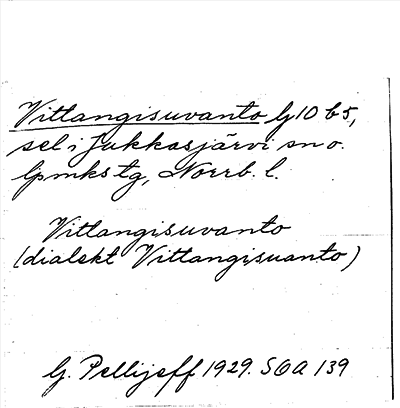 Vittangisuvanto bj 10 b 5,
sel i Jukkasjärvi sn o.
lpmks tg, Norrb. l.
Vittangisuvanto
(dialekt Vittangisuanto)
G. Pellijeff 1929. SOA 139